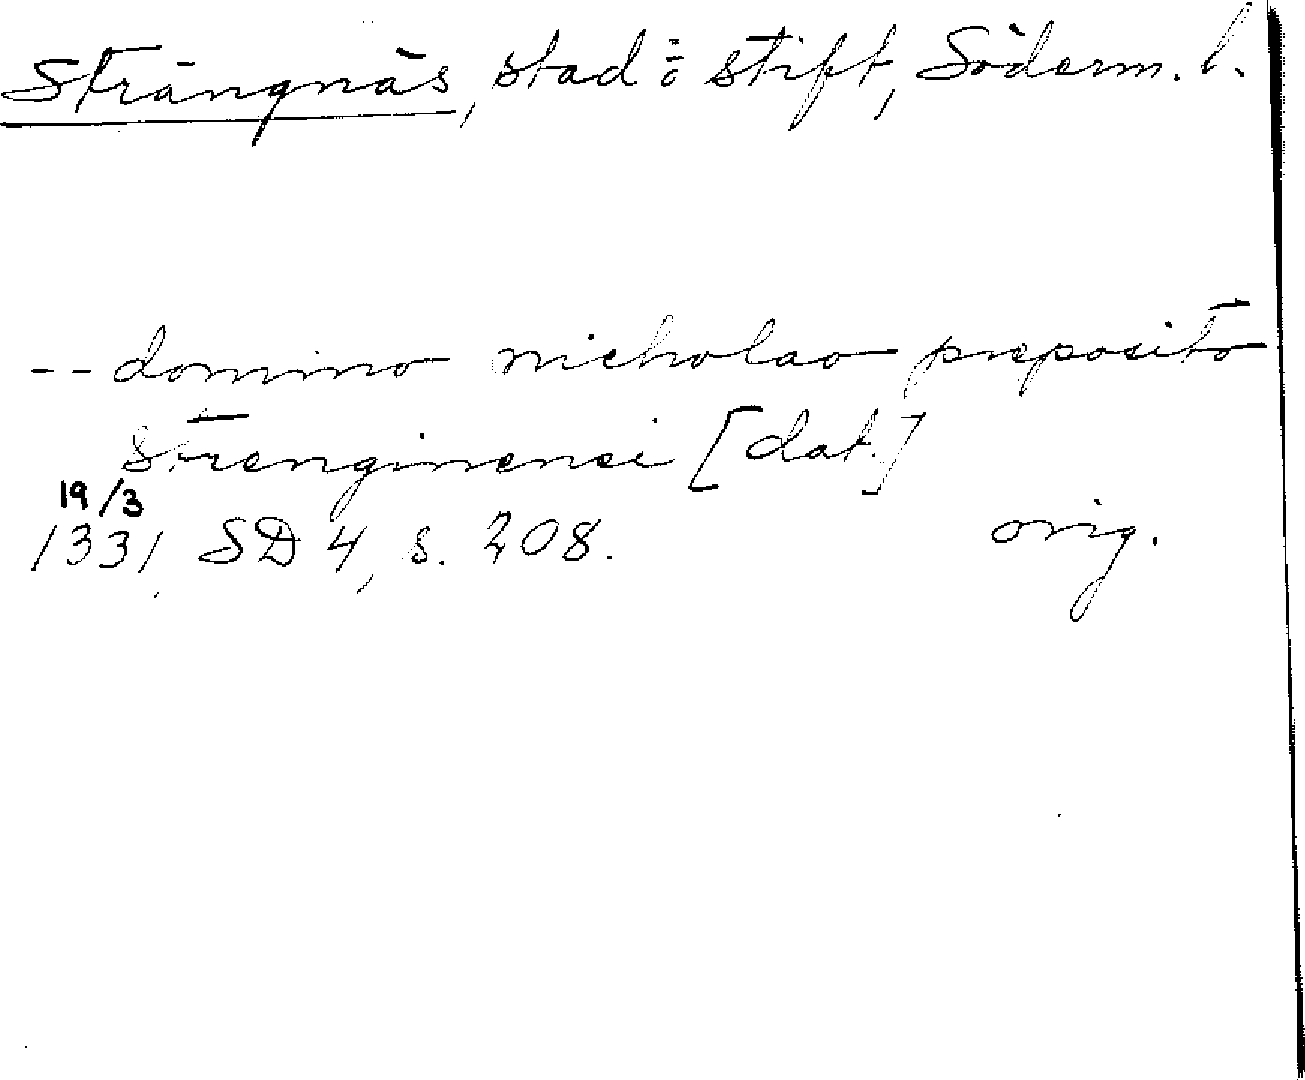 Strängnäs, stad o stift, Söderm. l.
-- domino nicholao preposito
Strenginensi [dat.]
19/3
1331, SD 4, s. 208. orig.